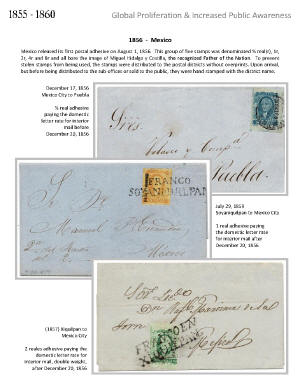 1855 - 1860
Global Proliferation & Increased Public Awareness
1856 - Mexico
Mexico released its first postal adhesive on August 1, 1856. This group of five stamps was denominated ½ real(r), 1r,
2r, 4r and 8r and all bore the image of Miguel Hidalgo y Costilla, the recognized Father of the Nation. To prevent
stolen stamps from being used, the stamps were distributed to the postal districts without overprints. Upon arrival,
but before being distributed to the sub-offices or sold to the public, they were hand stamped with the district name.
December 17, 1856
Mexico City to Puebla
½ real adhesive
paying the domestic
letter rate for interior
mail before
December 20, 1856
Sres.
Velasco y Comp.ª
Puebla.
FRANCO
SOYANIQUILPAN
Manuel
Mexico
July 29, 1859
Soyaniquilpan to Mexico City
1 real adhesive paying
the domestic letter rate
for interior mail after
December 20, 1856.
(1857) Xiquilpan to
Mexico City
2 reales adhesive paying the
domestic letter rate for
interior mail, double weight,
after December 20, 1856
FRANCO EN